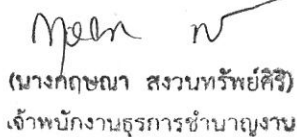 (นางกฤษณา สงวนทรัพย์ศิริ)
เจ้าพนักงานธุรการชำนาญงาน